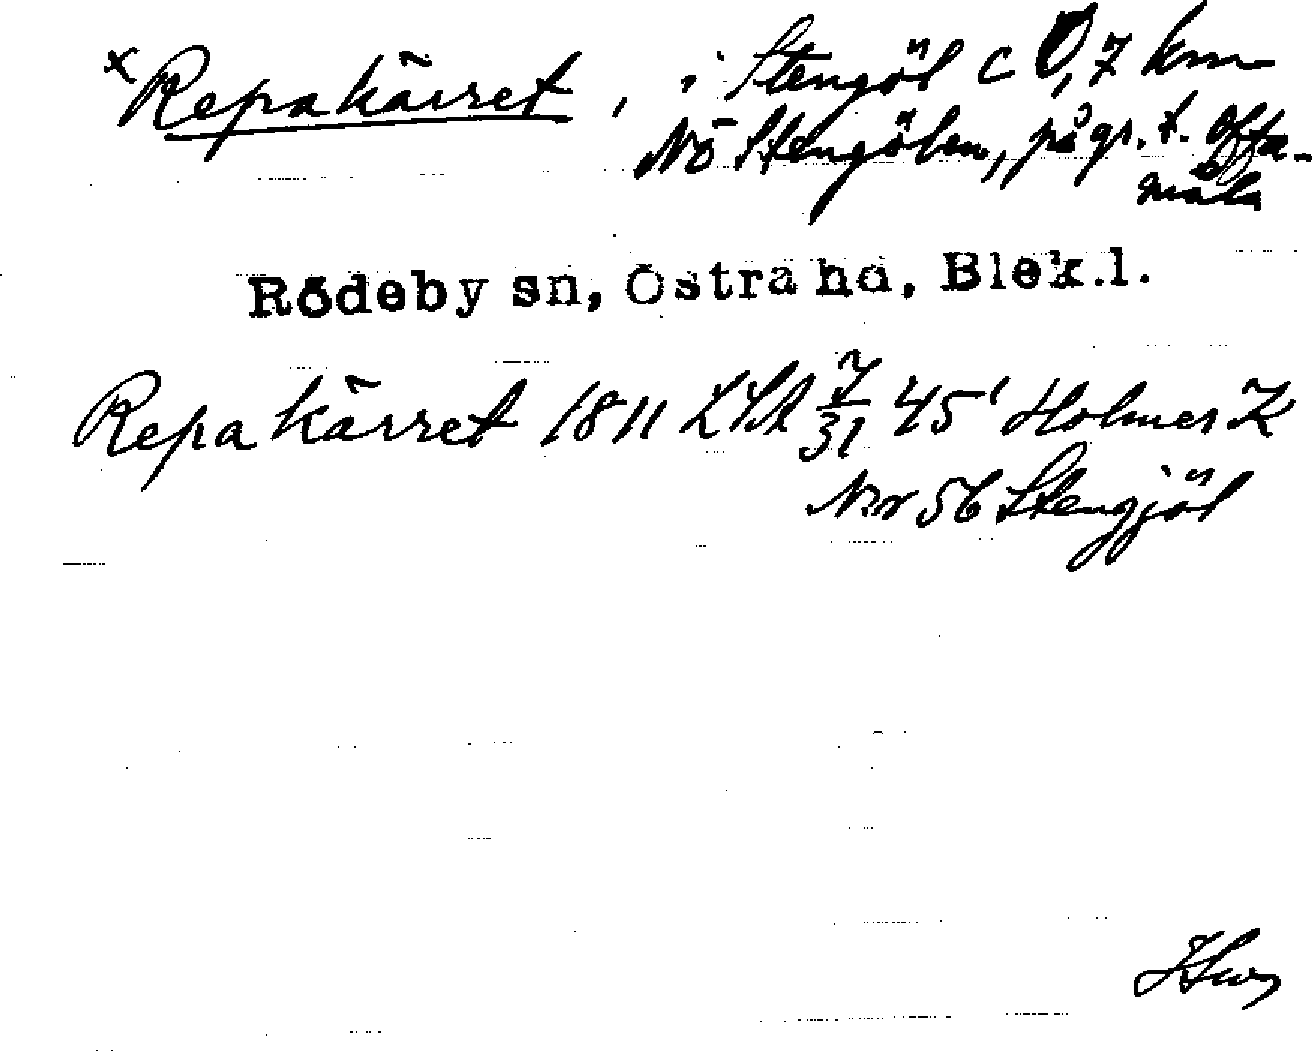 x Repakärret, i Stengöl c 0,7 km
NÖ Stengölen, på gr. t. Offa-
måla
Rödeby sn, Östra hd, Blek.l.
Repakärret 1811 LSA 7/31 45' Holmer K
Nr 56 Stengjöl